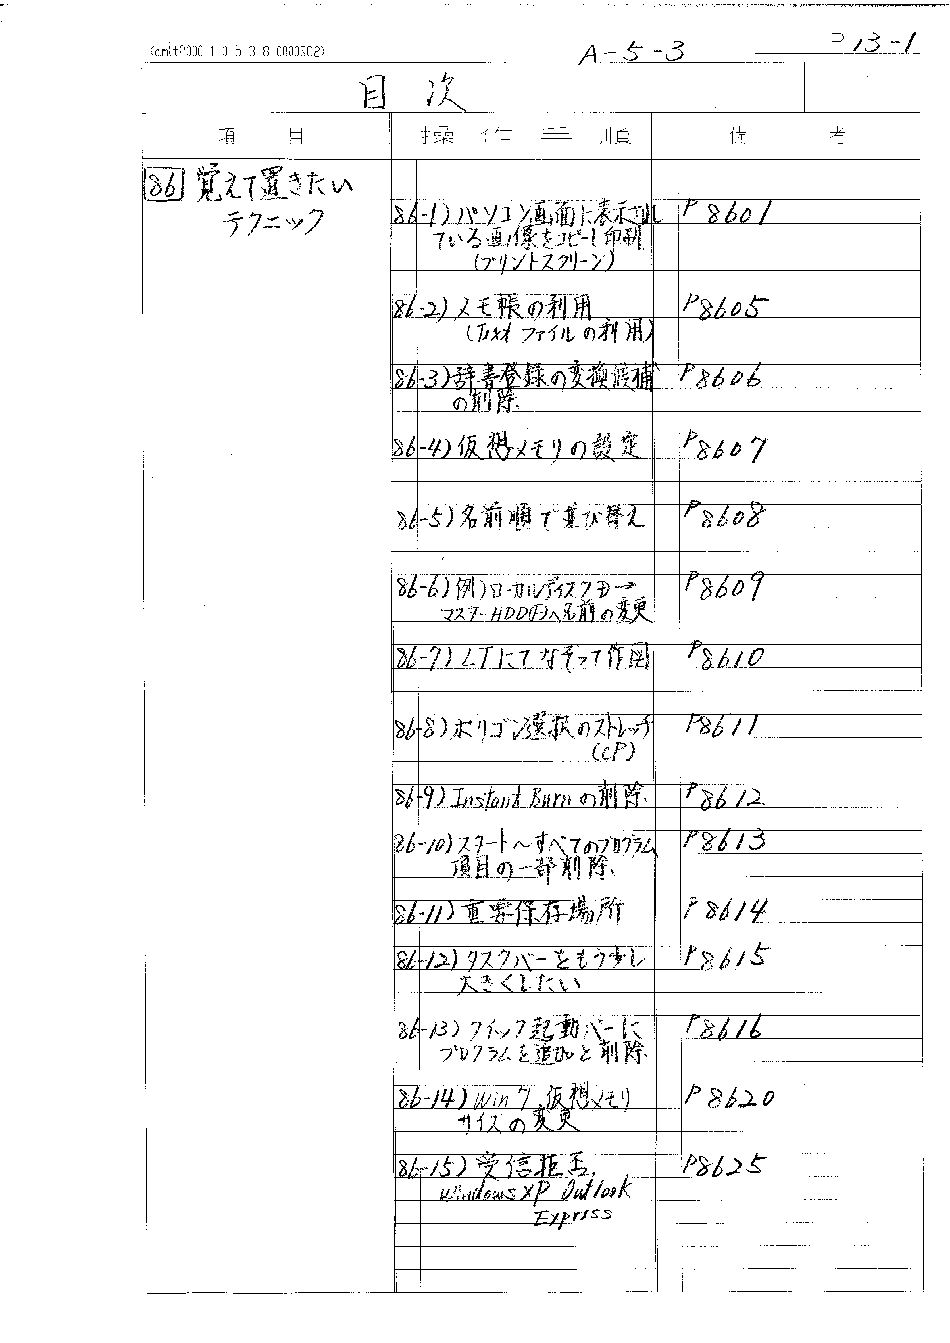 A-5-3
P13-1
目 次
項 目 操 作 手 順 備 考
86 覚えて置きたい
テクニック
86-1)パソコン画面に表示され P8601
ている画像をコピーし印刷
(プリントスクリーン)
86-2)メモ帳の利用 P8605
(Text ファイルの利用)
86-3)辞書登録の変換候補 P8606
の削除
86-4)仮想メモリの設定 P8607
86-5)名前順で並び替え P8608
86-6)例)ローカルディスクD→ P8609
マスターHDD(F)へ名前の変更
86-7)LTにてなぞって作図 P8610
86-8)ポリゴン選択のストレッチ P8611
(CP)
86-9)Instant Burnの削除 P8612
86-10)スタート~すべてのプログラム P8613
項目の一部削除
86-11)重要保存場所 P8614
86-12)タスクバーをもう少し P8615
大きくしたい
86-13)クイック起動バーに P8616
プログラムを追加と削除
86-14)Win7 仮想メモリ P8620
サイズの変更
86-15)受信拒否 P8625
Windows XP Outlook
Express